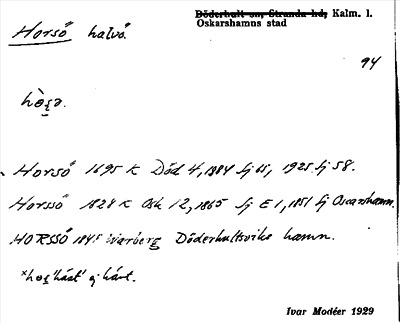 Horsö halvö.
Döderhult sn, Stranda hd, Kalm. l.
Oskarshamns stad
94
hòʂə.
Horsö 1695 K Död 4, 1884 Sj 65, 1925 Sj 58.
Horssö 1828 K Osk 12, 1865 Sj E 1, 1851 Sj Oscarshamn.
HORSSÖ 1845 Warberg Döderhultsviks hamn.
*hoʂ 'häst' ej hårt.
Ivar Modéer 1929